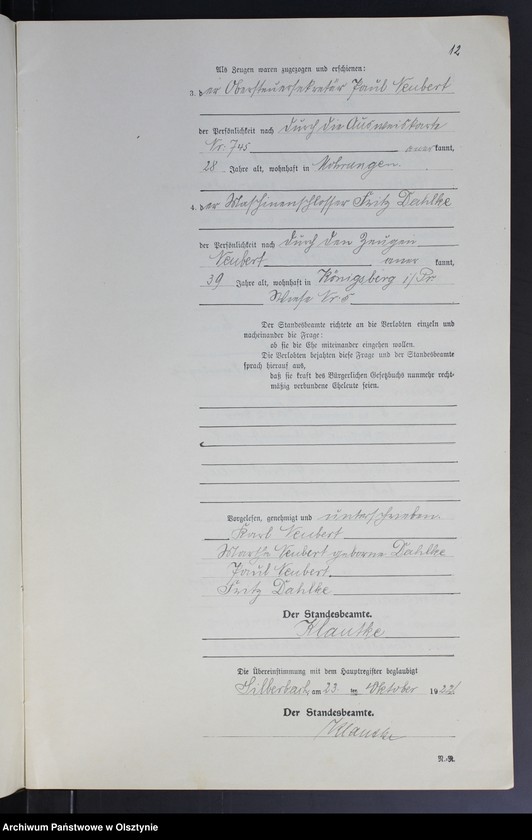 12
Als Zeugen waren zugezogen und erschienen:
3. der Obersteuersekretär Paul Neubert
der Persönlichkeit nach durch die Ausweiskarte
Nr. 745 aner kannt,
28 Jahre alt, wohnhaft in Mohrungen.
4. der Maschinenschlosser Fritz Dahlke
der Persönlichkeit nach durch den Zeugen
Neubert aner kannt,
39 Jahre alt, wohnhaft in Königsberg i/Pr.
Nr. 5
Der Standesbeamte richtete an die Verlobten einzeln und
nacheinander die Frage:
ob sie die Ehe miteinander eingehen wollen.
Die Verlobten bejahten diese Frage und der Standesbeamte
sprach hierauf aus,
daß sie kraft des Bürgerlichen Gesetzbuchs nunmehr recht-
mäßig verbundene Eheleute seien.
Vorgelesen, genehmigt und unterschrieben.
Karl Neubert
Martha Neubert geborne Dahlke
Paul Neubert
Fritz Dahlke
Der Standesbeamte.
Klautke
Die Übereinstimmung mit dem Hauptregister beglaubigt
Silberbach, am 23 ten Oktober 1922
Der Standesbeamte.
Klautke
N.-R.
Archiwum Państwowe w Olsztynie